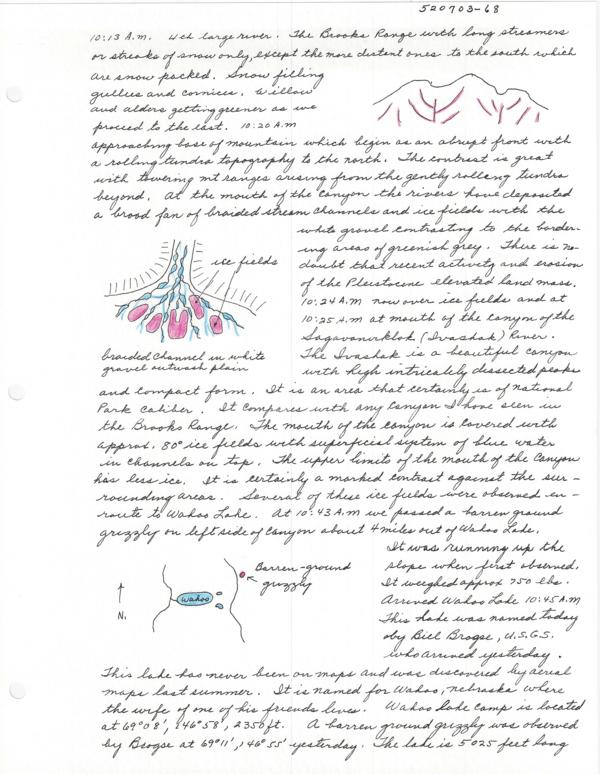 520703-68
10:13 A.M. Wed large river. The Brooks Range with long streamers
or streaks of snow only, except the more distant ones to the south which
are snow packed. Snow filling
gullies and cornices. Willow
and alders getting greener as we
proceed to the east. 10:20 A.M
approaching base of mountain which begin as an abrupt front with
a rolling tundra topography to the north. The contrast is great
with towering mt ranges arising from the gently rolling tundra
beyond. At the mouth of the canyon the rivers have deposited
a broad fan of braided stream channels and ice fields with the
white gravel contrasting to the border-
ing areas of greenish grey. There is no
doubt that recent activity and erosion
of the Pleistocene elevated land mass.
10:24 A.M now over ice fields and at
10:25 A.M at mouth of the canyon of the
Sagavanirktok (Ivashak) River.
The Ivashak is a beautiful canyon
with high intricately dissected peaks
ice fields
braided channel in white
gravel outwash plain
and compact form. It is an area that certainly is of National
Park Caliber. It compares with any Canyon I have seen in
the Brooks Range. The mouth of the canyon is covered with
approx. 80° ice fields with superficial system of blue water
in channels on top. The upper limits of the mouth of the Canyon
has less ice. It is certainly a marked contrast against the sur-
rounding areas. Several of these ice fields were observed en-
route to Wahoo Lake. At 10:43 A.M we passed a barren ground
grizzly on left side of Canyon about 4 miles out of Wahoo Lake.
It was running up the
slope when first observed.
It weighed approx 750 lbs.
Arrived Wahoo Lake 10:45 A.M
This lake was named today
by Bill Brogse, U.S.G.S.
who arrived yesterday.
Barren-ground
grizzly
Wahoo
N.
This lake has never been on maps and was discovered by aerial
maps last summer. It is named for Wahoo, nebraska where
the wife of one of his friends lives. Wahoo Lake Camp is located
at 69°08', 146°58', 2350 ft. A barren ground grizzly was observed
by Brogse at 69°11', 146°55' yesterday. The lake is 5025 feet long